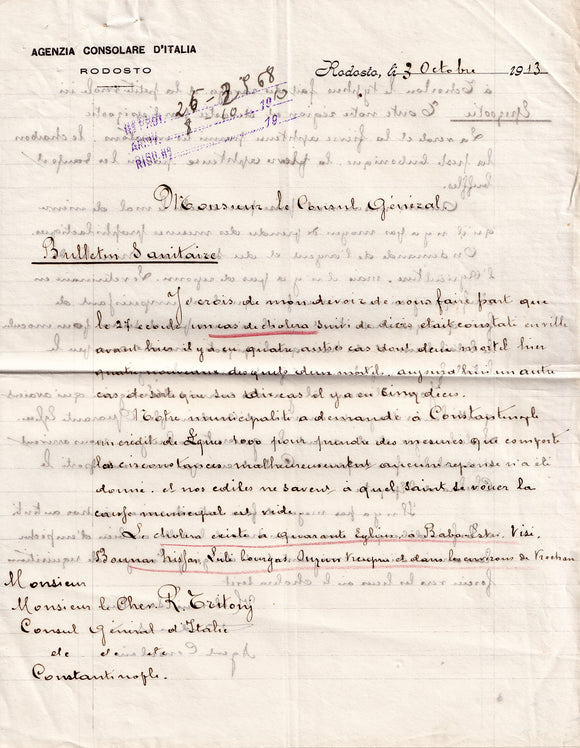 AGENZIA CONSOLARE D'ITALIA
RODOSTO
Rodosto, li 3 Octobre 1913
Monsieur le Consul Général
Bulletin Sanitaire
Je crois de mon devoir de vous faire part que
le 27 écoulé un cas de choléra suivi de décès était constaté en ville
avant hier il y a eu quatre autres cas dont deux mortels hier
quatre nouveaux desquels deux mortels, aujourd'hui un autre
cas de sorte que sur dix cas il y a eu cinq décès.
Notre municipalité a demandé à Constantinople
un crédit de 1000 pour prendre des mesures que comporte
les circonstances malheureusement aucune reponse n'a été
donné. et nos édiles ne savent à quel saint se vouer la
caisse municipal est vide.
Le choléra existe à Quarante Eglises, à Baba Eski. Visi.
Bounar hissar. Lulé bourgas. Ouzun Keupru et dans les environs de
Monsieur
Monsieur le Chev. R. Tritonj
Consul Général d'Italie
etc etc etc
Constantinople.